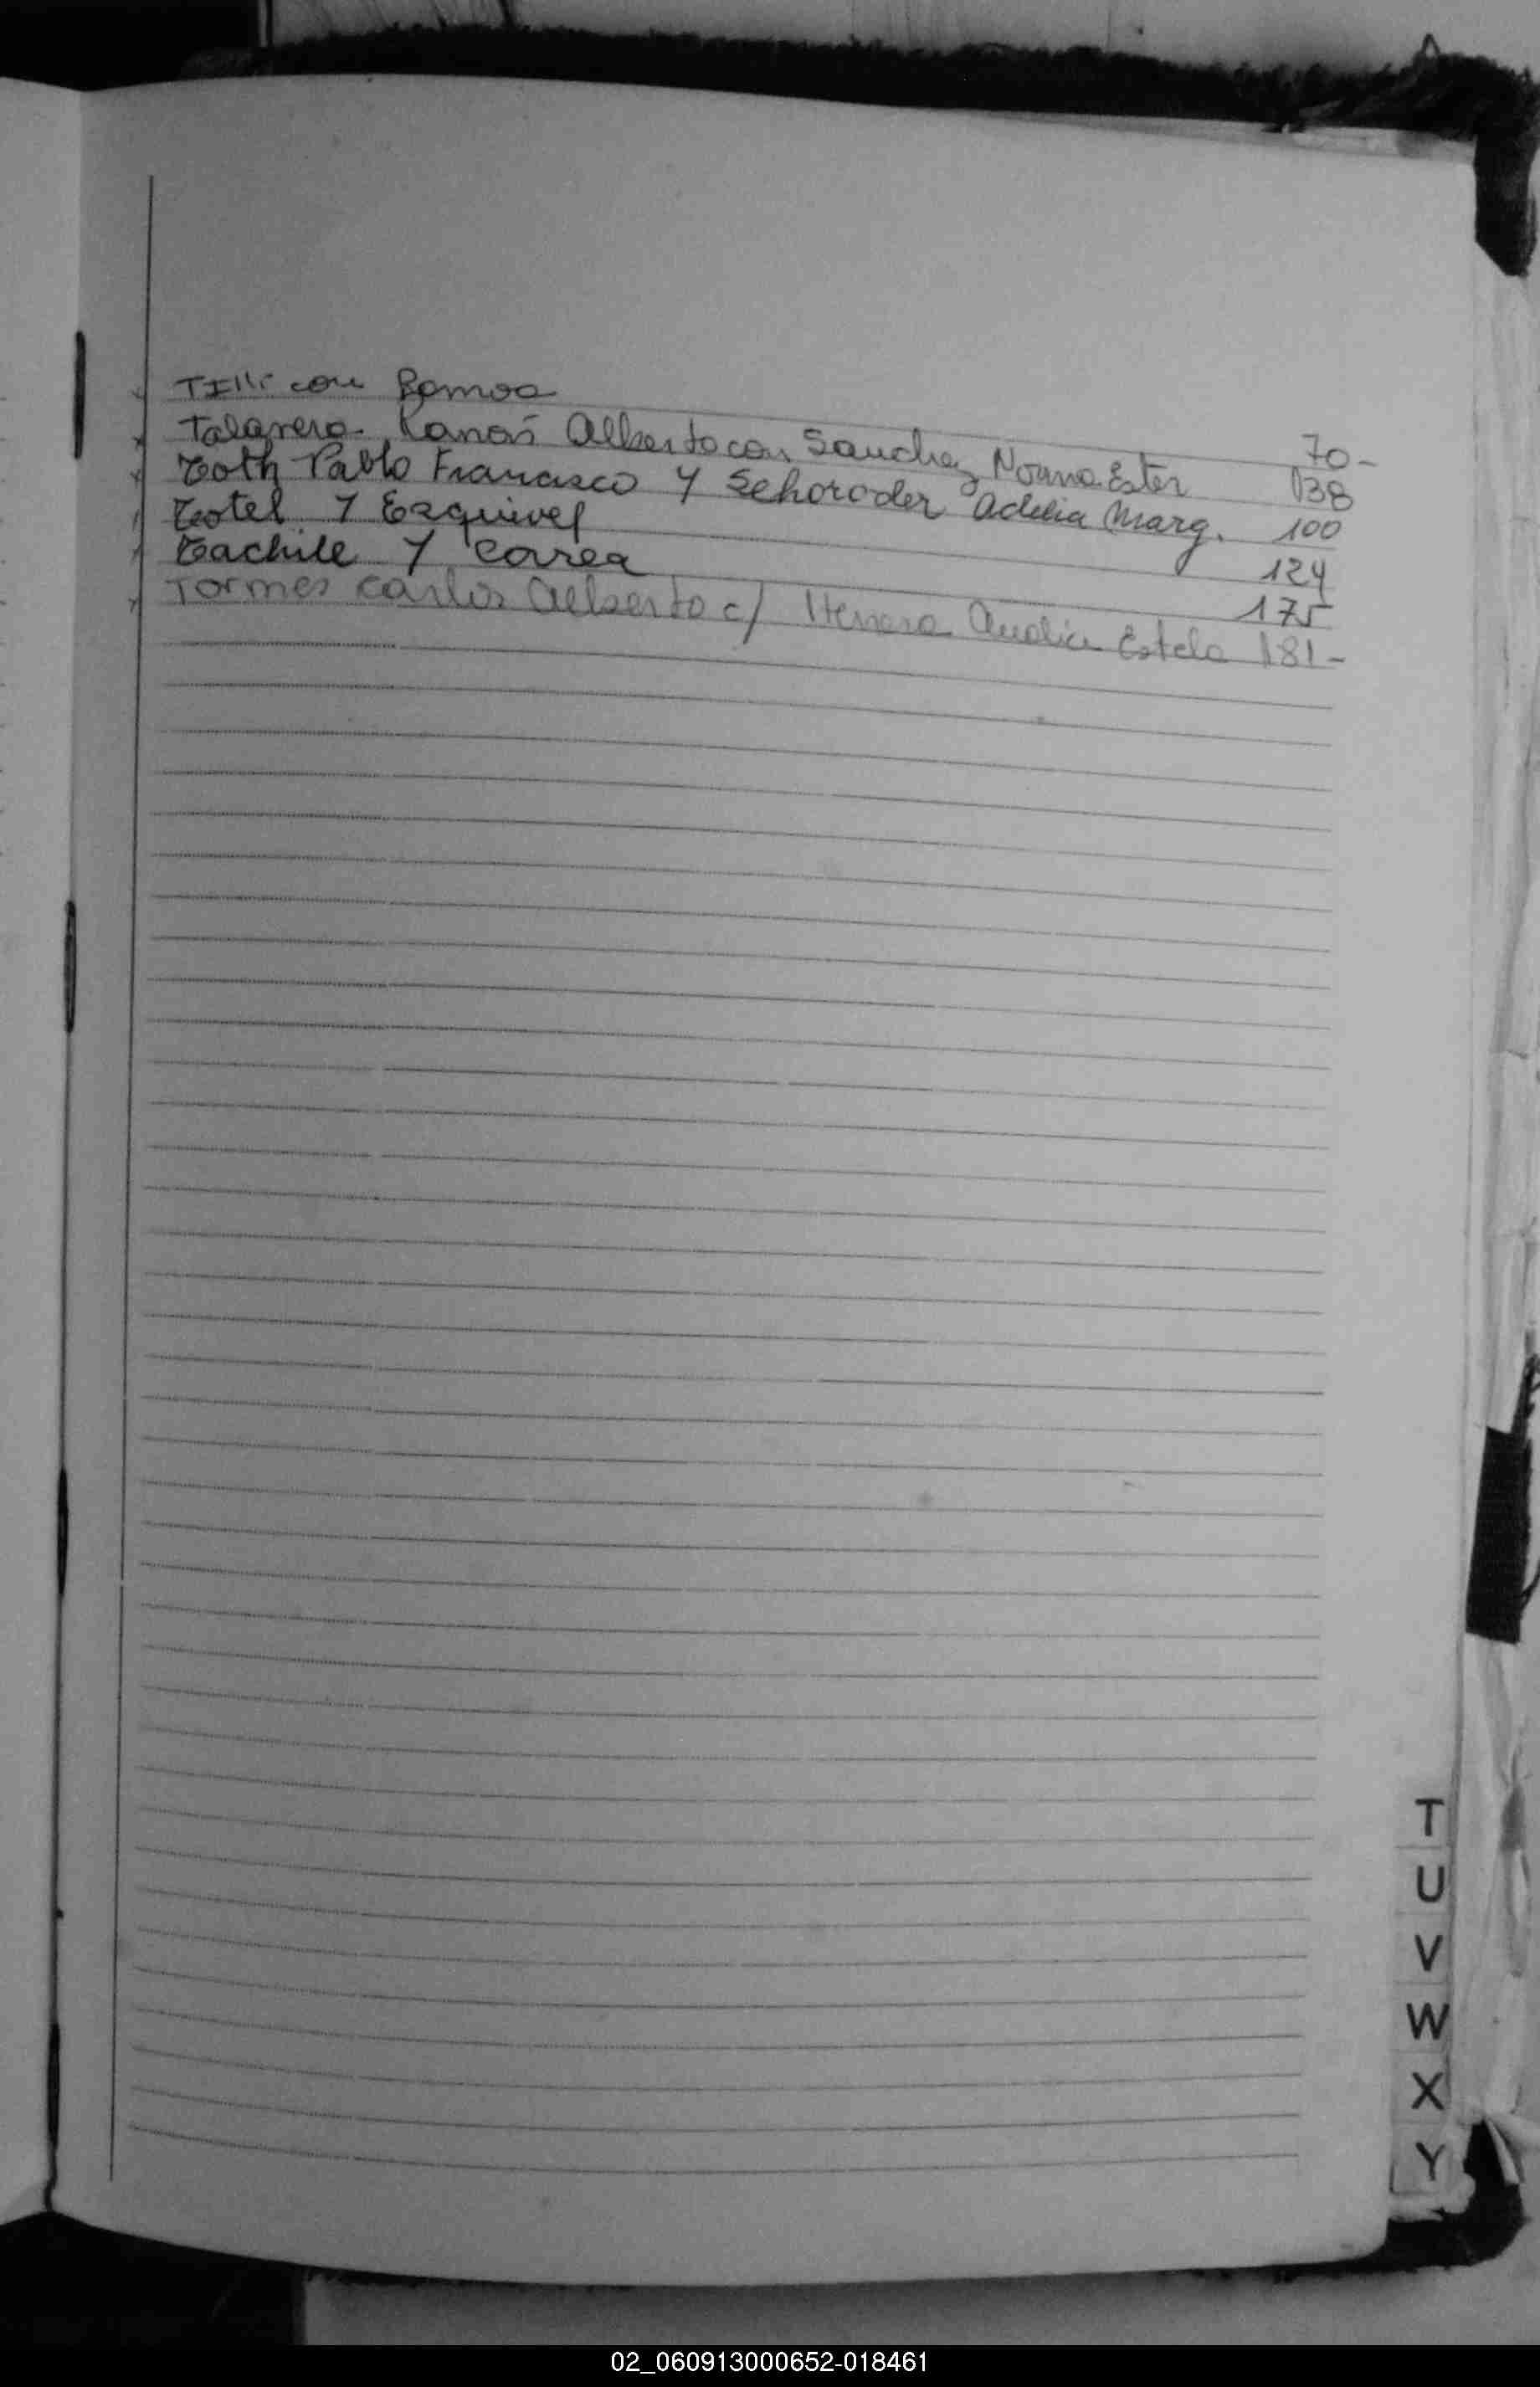 TIlli con Bamoa
Talavera Ramón Alberto con Sanchez Norma Ester 70-
Toth Pablo Francisco Y Sehoroder Adelia Marg. 138
Totel Y Esquivel 100
Tachile Y Correa 124
175
Tormes Carlos Alberto c/ Herrera Analia Estela 181-
T
U
V
W
X
Y
02_060913000652-018461